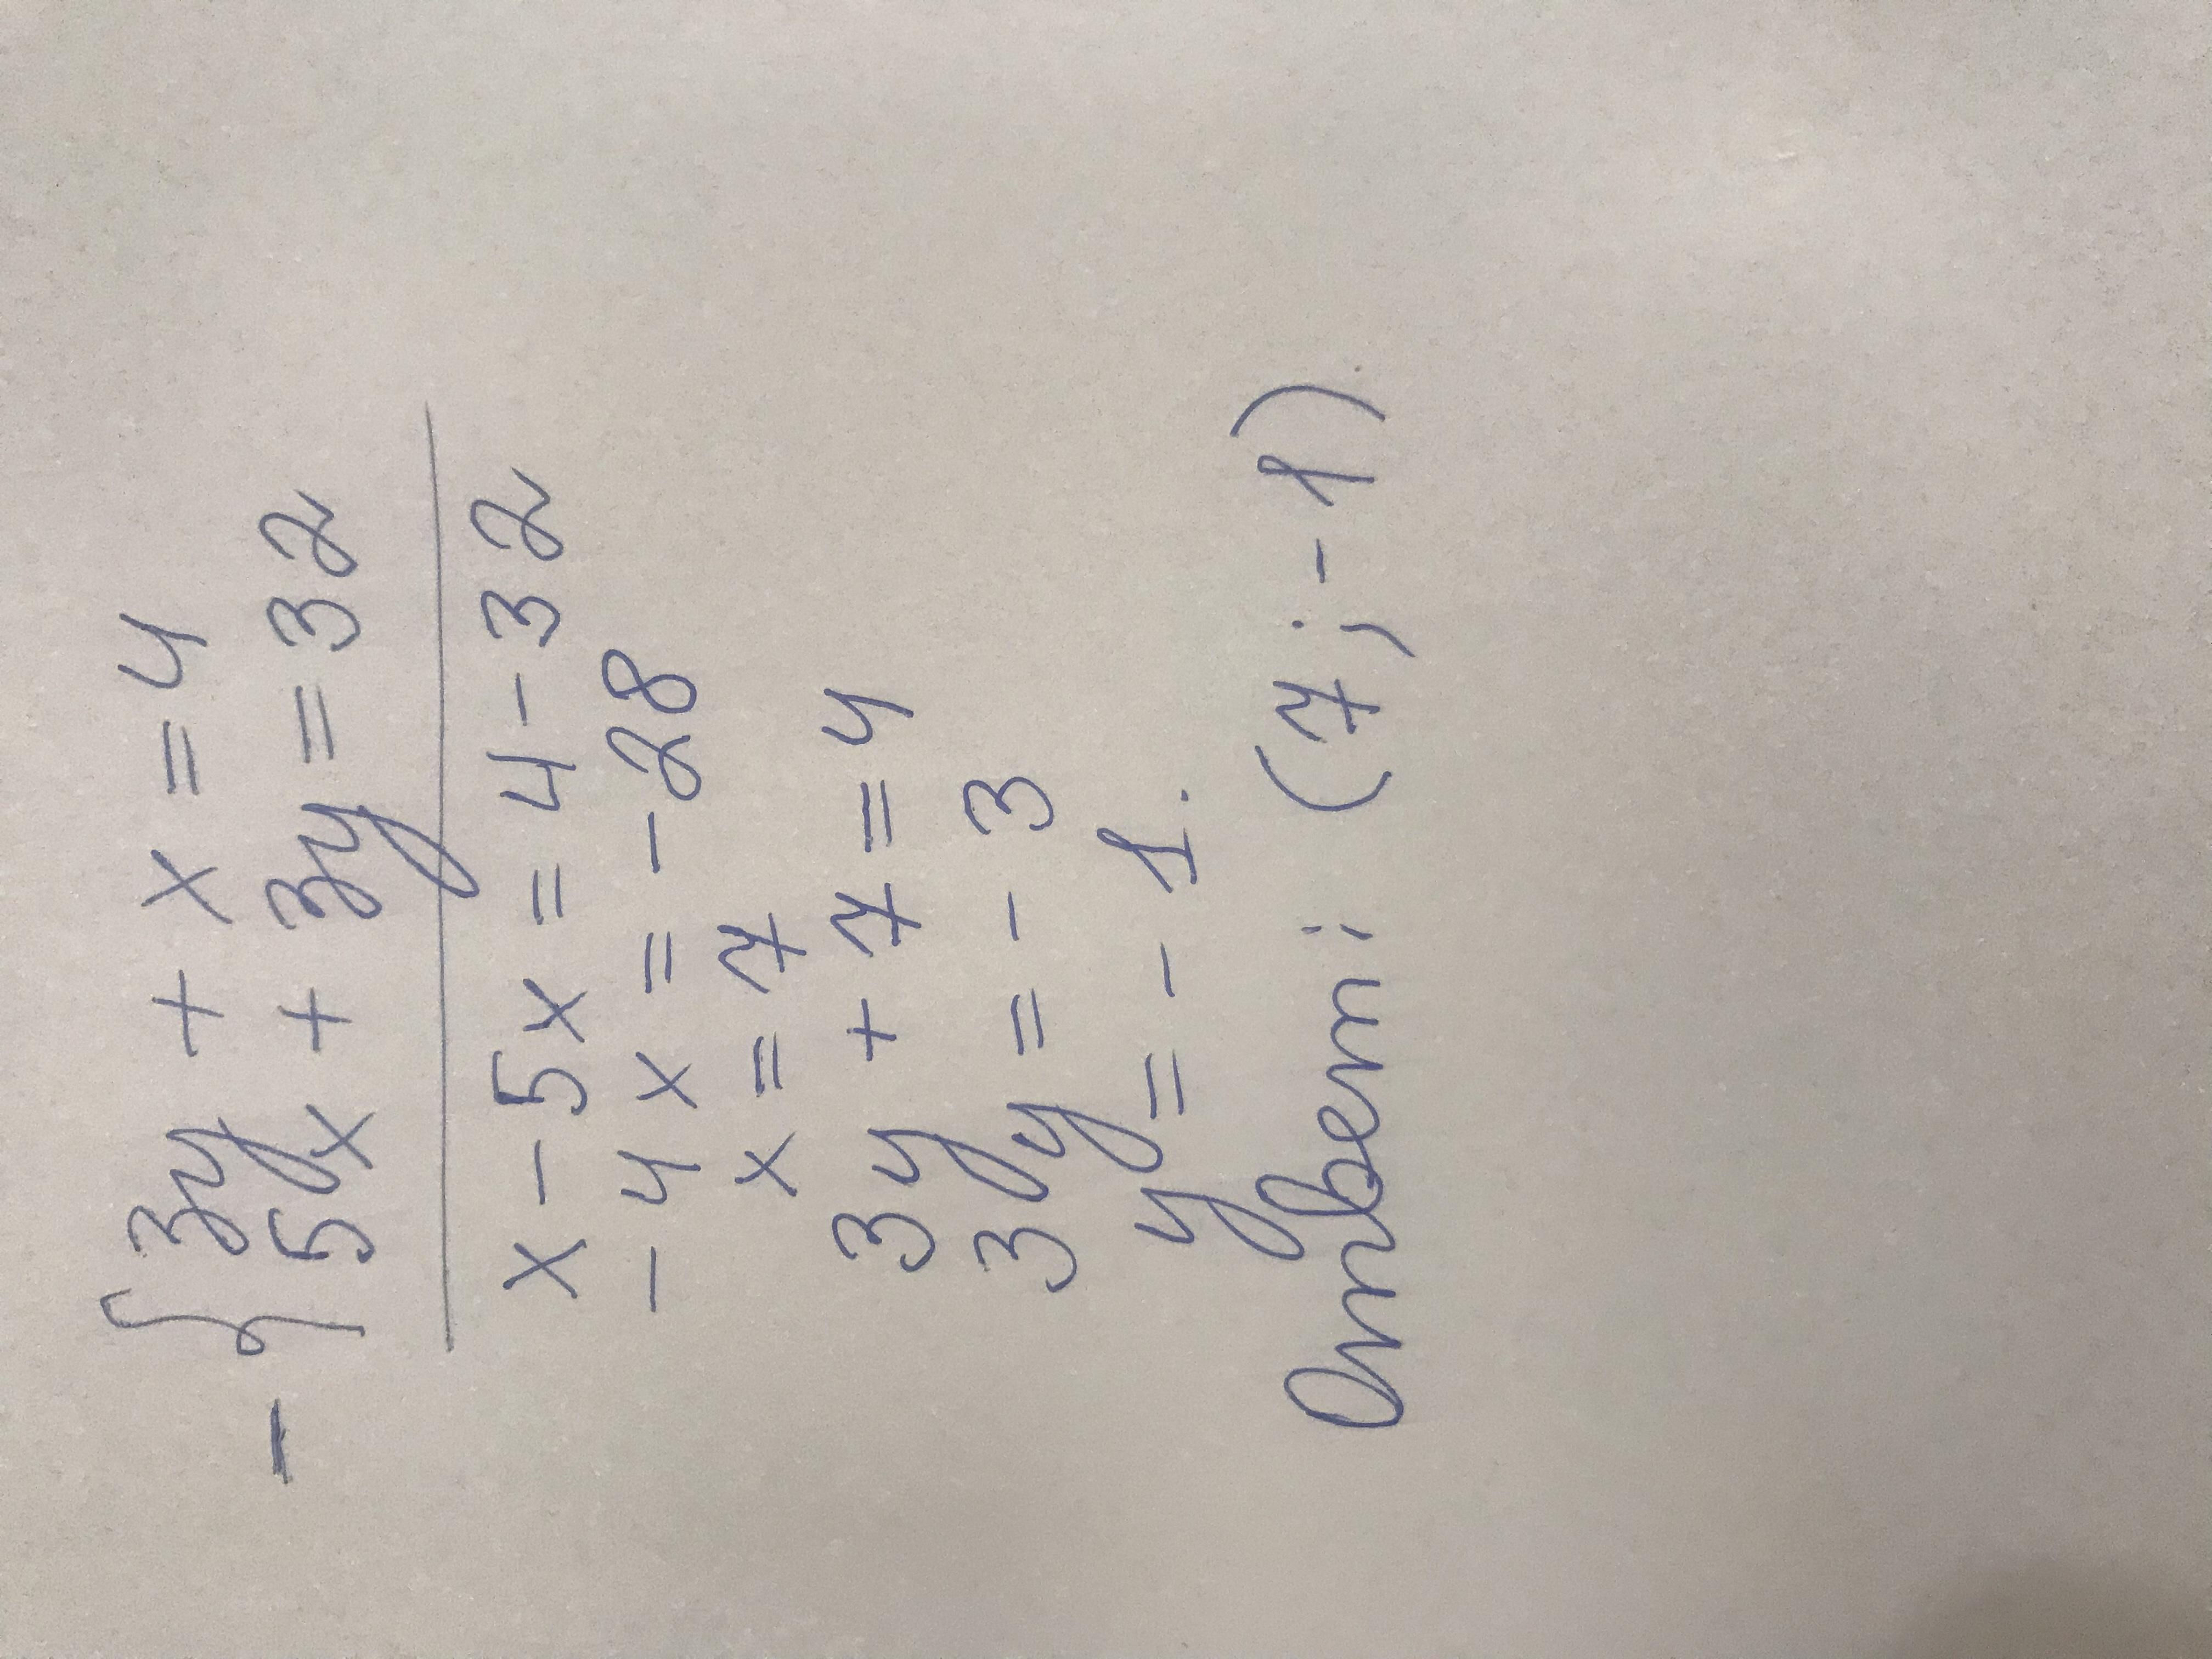 - { 3y + x = 4
5x + 3y = 32
x - 5x = 4 - 32
- 4x = - 28
x = 7
3y + 7 = 4
3y = - 3
y = - 1.
Ответ: (7; -1)